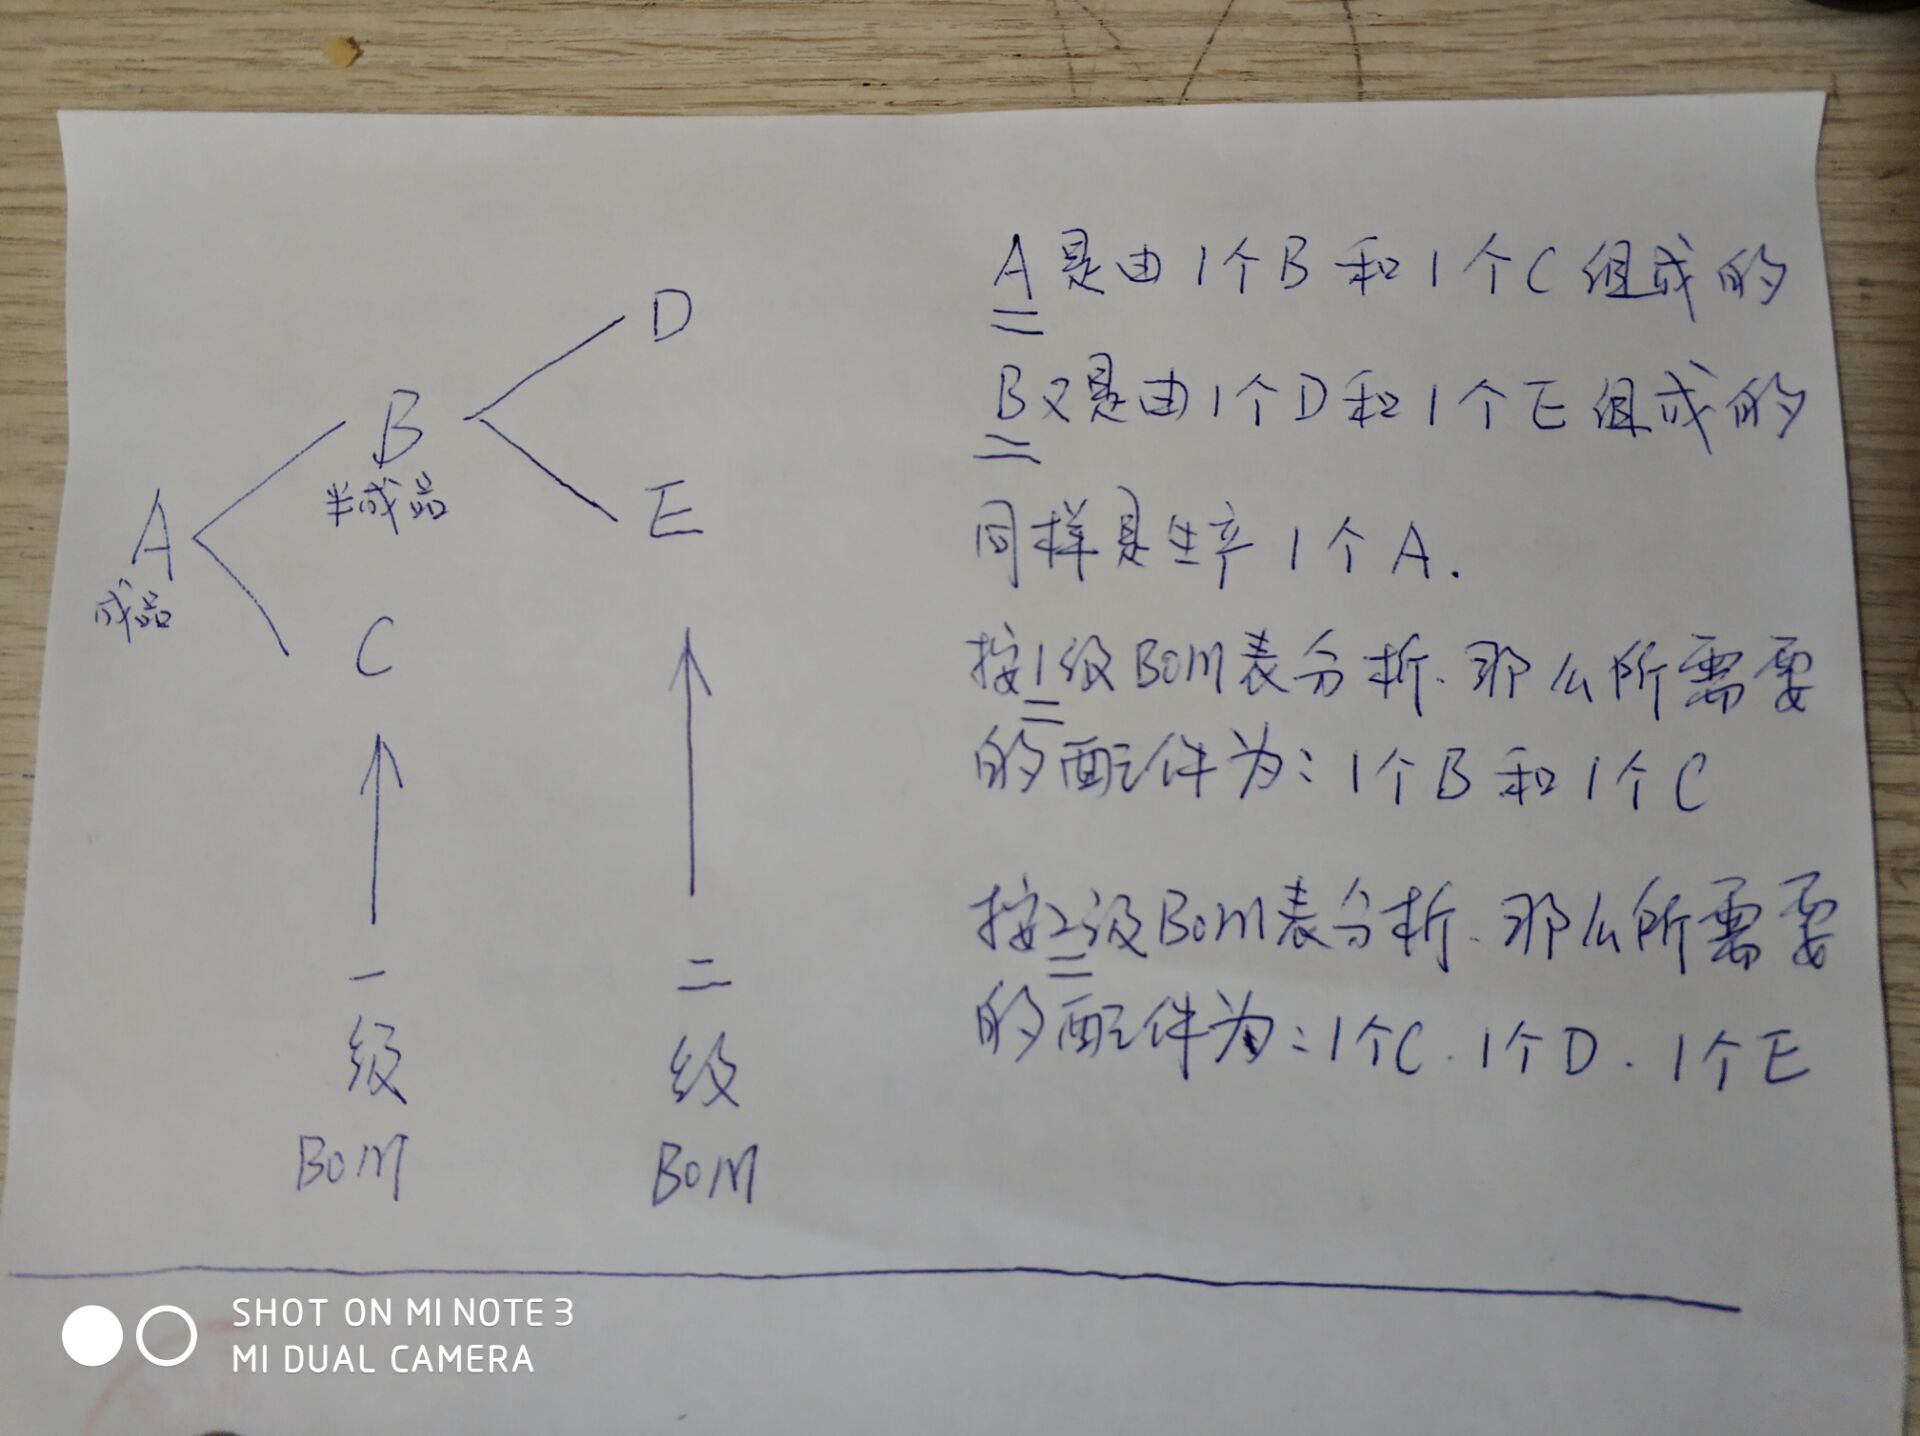 A
成品
B
半成品
C
D
E
一
级
BOM
二
级
BOM
A是由1个B和1个C组成的
B又是由1个D和1个E组成的
同样是生产1个A.
按1级BOM表分析.那么所需要
的配件为:1个B和1个C
按2级BOM表分析.那么所需要
的配件为:1个C.1个D.1个E
SHOT ON MI NOTE 3
MI DUAL CAMERA